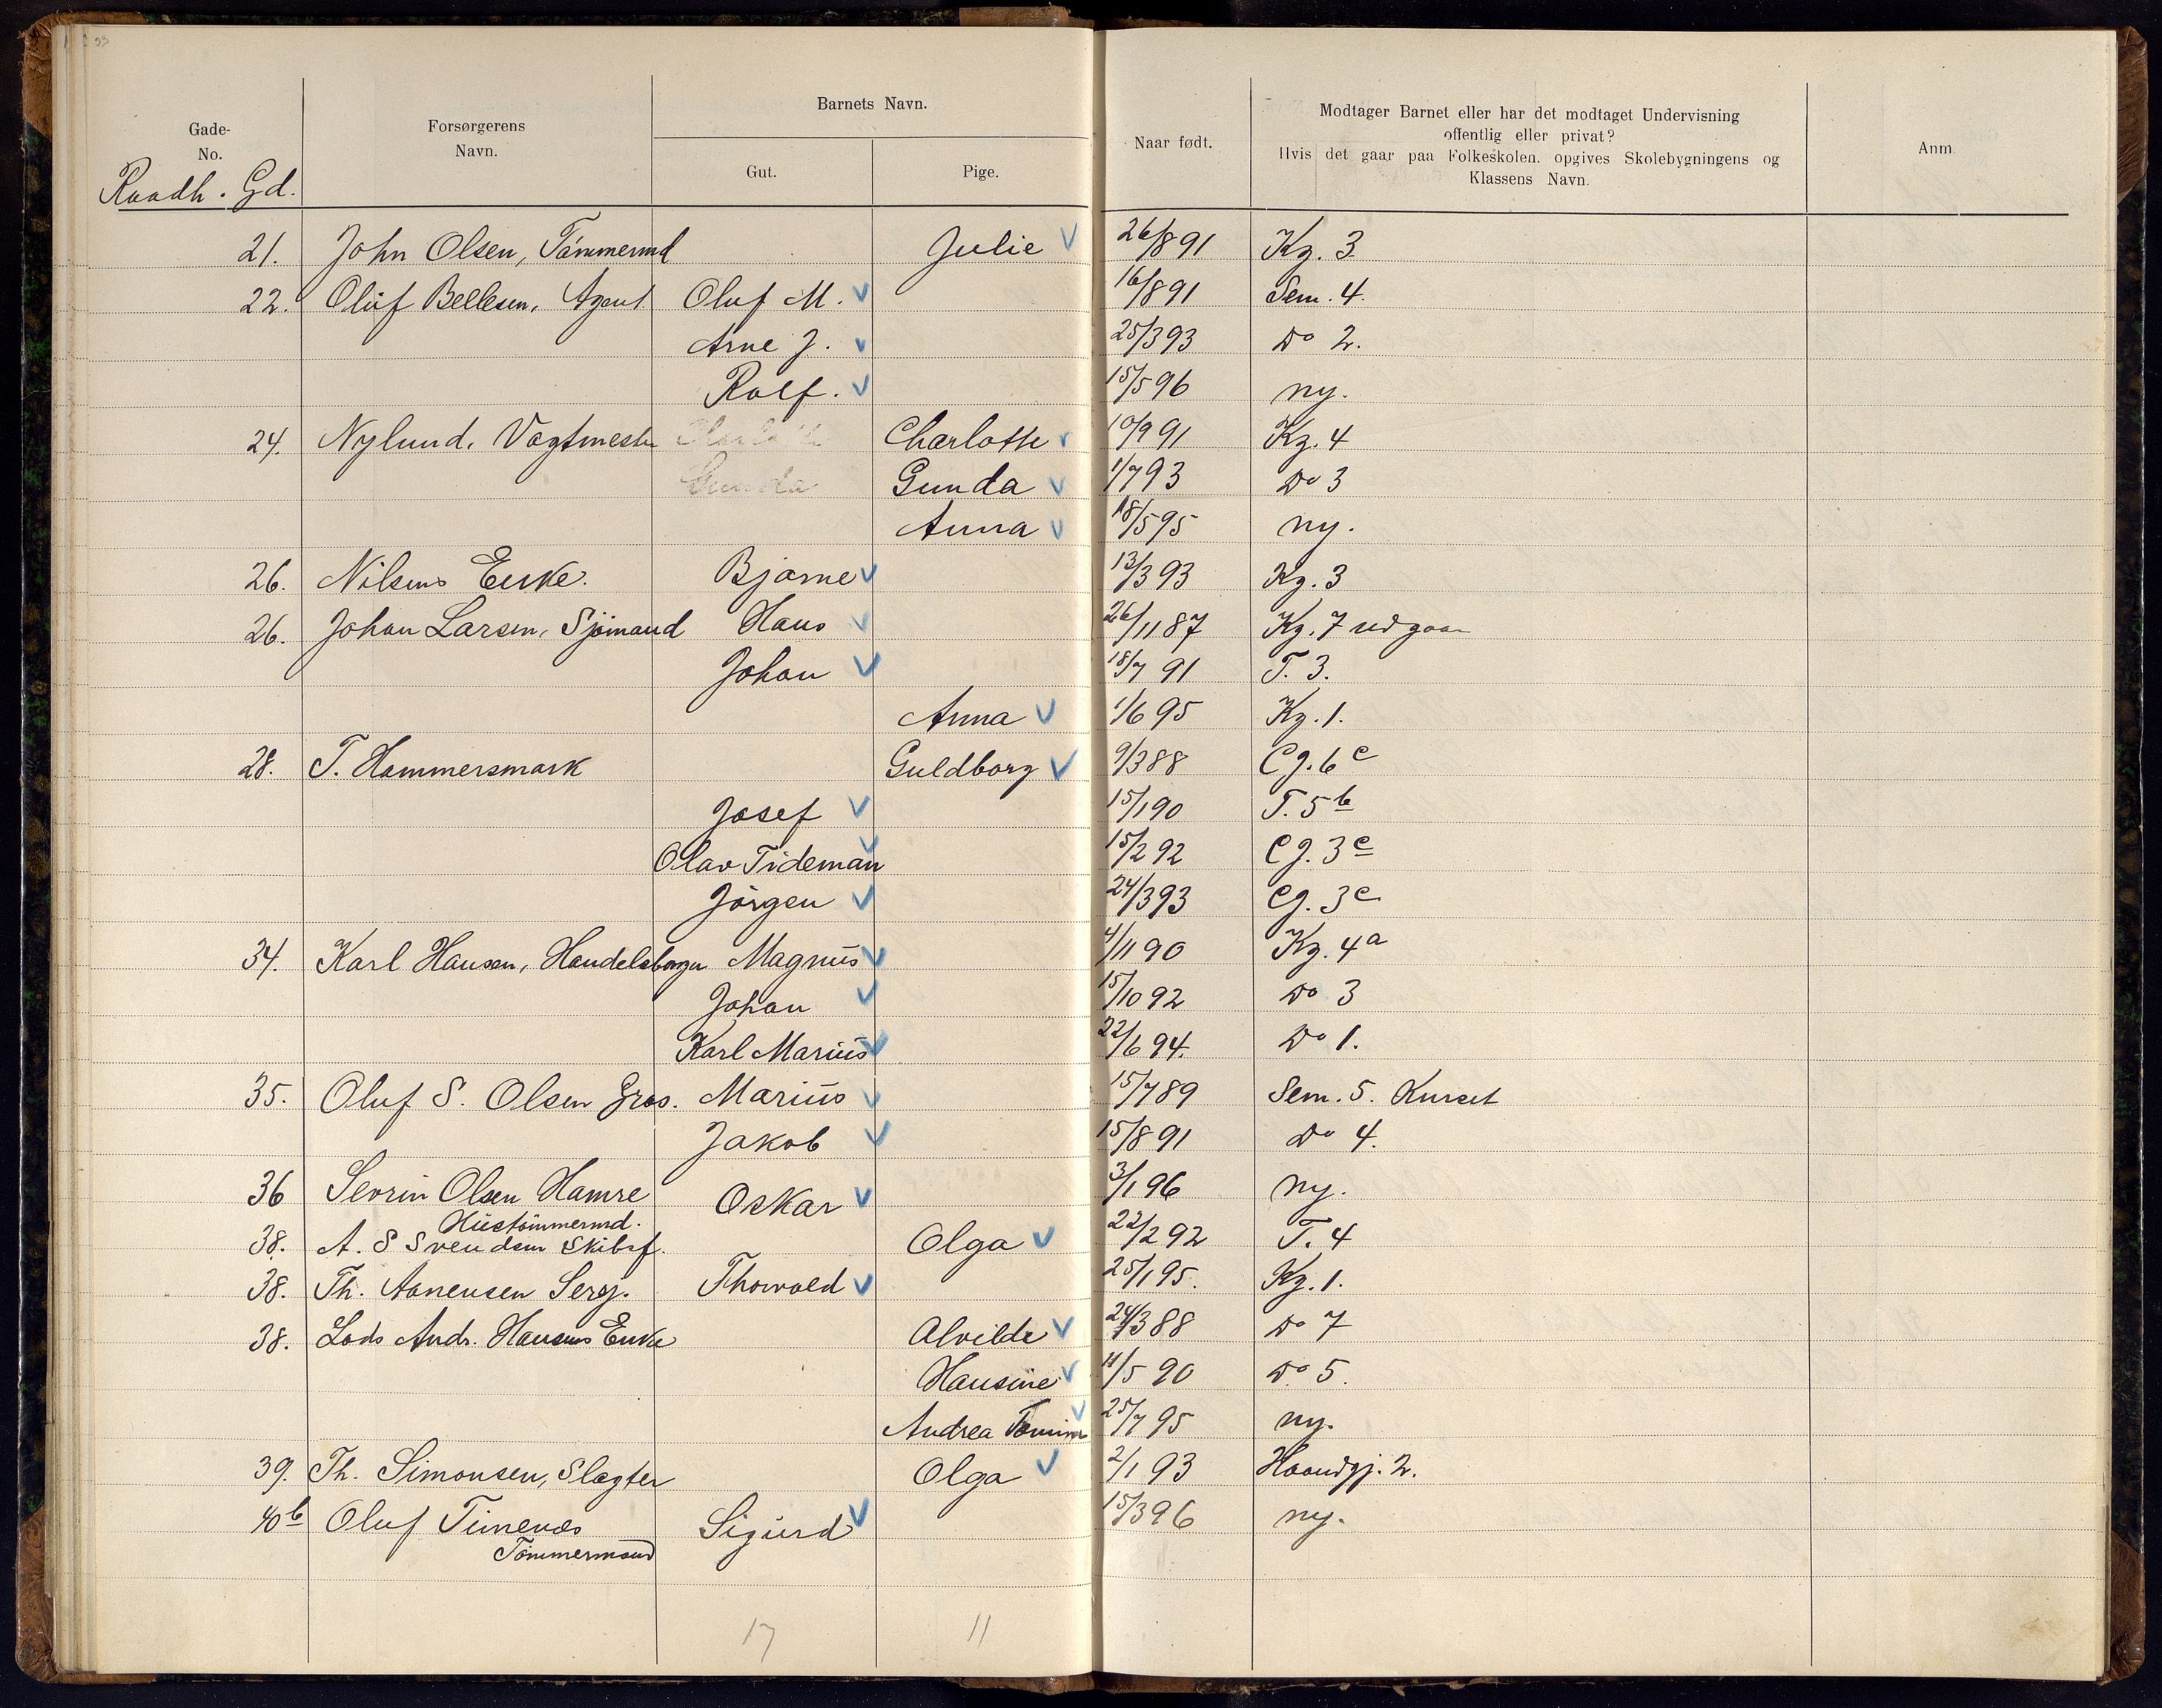 Gade-
No.
Raadh. Gd.
Forsørgerens
Navn.
Barnets Navn.
Gut.
Pige.
Naar født.
Modtager Barnet eller har det modtaget Undervisning
offentlig eller privat?
Hvis det gaar paa Folkeskolen, opgives Skolebygningens og
Klassens Navn.
Anm.
21. John Olsen, Tømmermd Julie 26/8 91 Kg. 3
22. Oluf Bellesen, Agent Oluf M. 16/8 91 Sem. 4.
Arne J. 25/3 93 Do 2.
Rolf. 15/5 96 ny.
24. Nylund, Vagtmester Charlotte 10/9 91 Kg. 4
Gunda Gunda 1/7 93 Do 3
Anna 18/5 95 ny.
26. Nilsens Enke. Bjarne 13/3 93 Kg. 3
26. Johan Larsen, Sjömand Hans 26/11 87 Kg. 7 udgaar
Johan 18/7 91 T. 3.
Anna 1/6 95 Kg. 1.
28. T. Hammersmark Guldborg 9/3 88 Cg. 6c
Josef 15/1 90 T. 5b
Olav Tideman 15/2 92 Cg. 3c
Jörgen 24/3 93 Cg. 3c
34. Karl Hansen, Handelsborger Magnus 4/11 90 Kg. 4a
Johan 15/10 92 Do 3
Karl Marius 22/6 94. Do 1.
35. Oluf S. Olsen Gros. Marius 15/7 89 Sem. 5. Kurset
Jakob 15/8 91 Do 4.
36 Sevrin Olsen Hamre Oskar 3/1 96 ny.
Hustömmermd.
38. A. S Svendsen Skibsf. Olga 22/2 92 T. 4
38. Th. Aanensen Serg. Thorvald 25/1 95. Kg. 1.
38. Lods Andr. Hansens Enke Alvilde 24/3 88 Do 7
Hansine 11/5 90 Do 5.
Andrea 25/7 95 ny.
39. Th. Simonsen, Slagter Olga 2/1 93 Haandgj. 2.
40b Oluf Timenæs Sigurd 15/3 96 ny.
Tömmermand
17 11